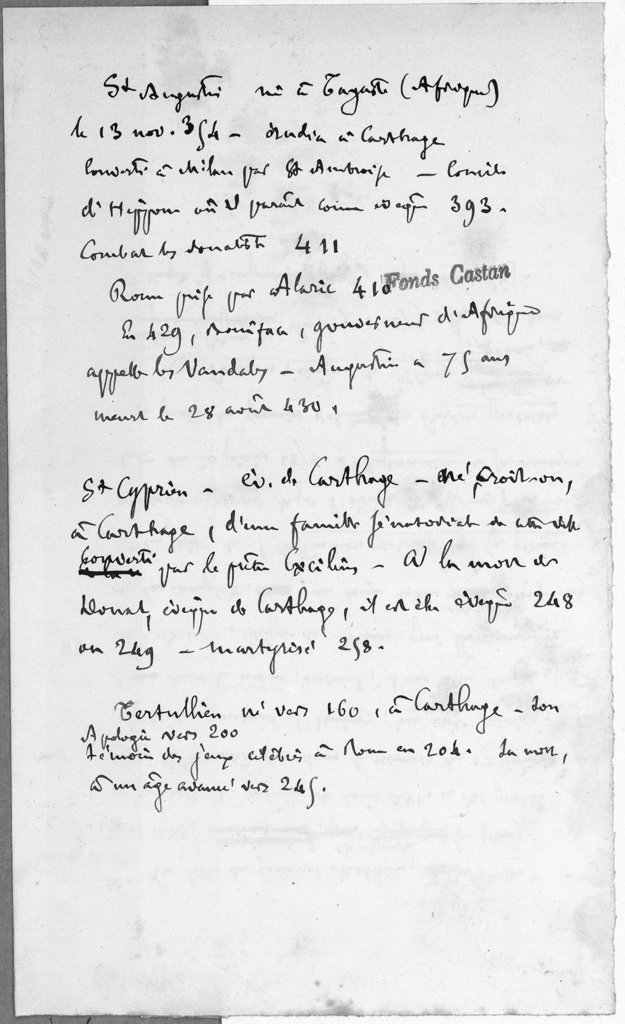 St Augustin né à Tagaste (Afrique)
le 13 nov. 354 – étudia à Carthage
Converti à Milan par St Ambroise – Concile
d'Hippone où il paraît comme évêque 393.
Combat les donatistes 411
Rome prise par Alaric 410
Fonds Castan
En 429, Boniface, gouverneur d'Afrique
appelle les Vandales – Augustin a 75 ans
meurt le 28 août 430.
St Cyprien – év. de Carthage – né, croit-on,
à Carthage, d'une famille sénatoriale de cette ville
Converti par le prêtre Cæcilius – A la mort de
Donat, évêque de Carthage, il est élu évêque 248
ou 249 – martyrisé 258.
Tertullien né vers 160, à Carthage – Son
Apologie vers 200
témoin des jeux célébrés à Rome en 204. Sa mort,
à un âge avancé vers 245.